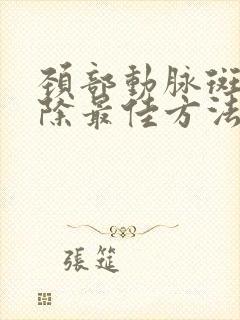 頸部動脉斑
除最佳方法
張筵